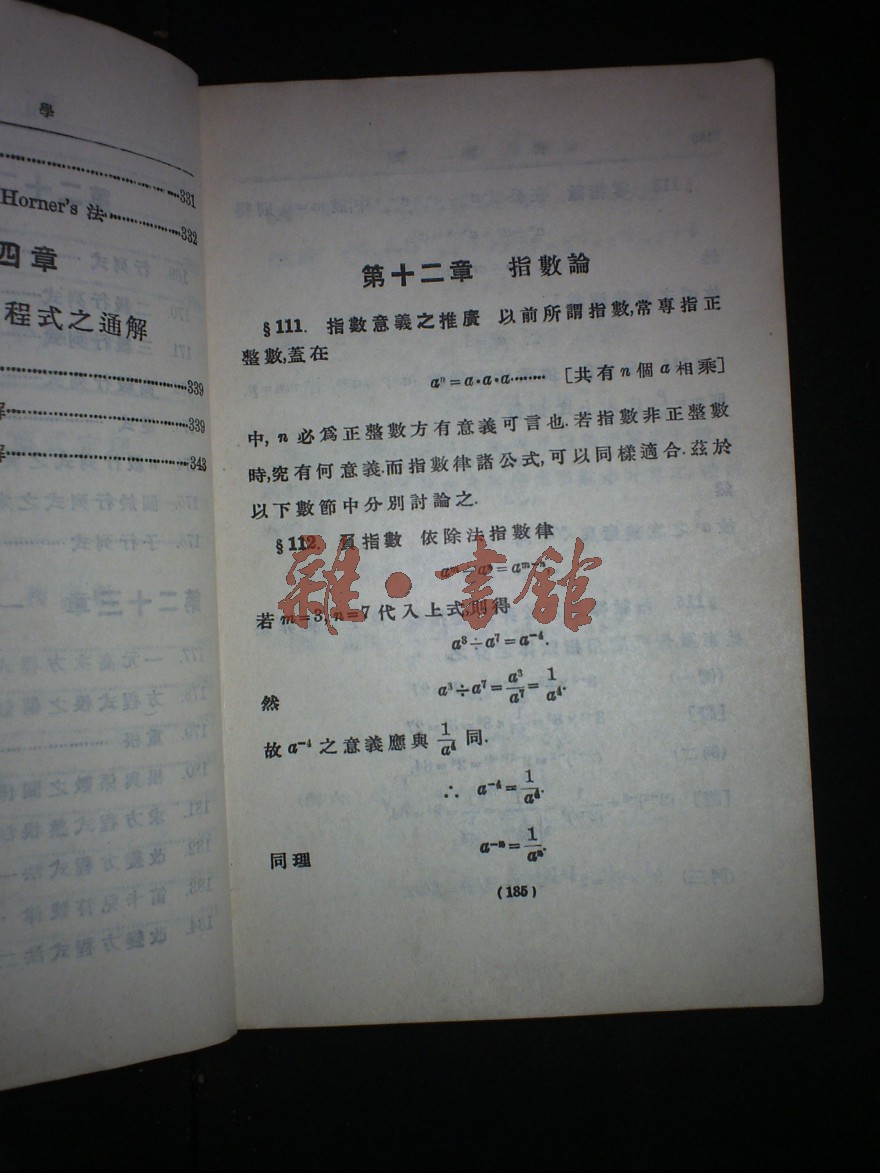 學
331
Horner's 法 332
四章
程式之通解
339
解 339
解 343
第十二章 指數論
§111. 指數意義之推廣 以前所謂指數,常專指正
整數,蓋在
aⁿ=a·a·a········ [共有n個a相乘]
中, n 必爲正整數方有意義可言也.若指數非正整數
時,究有何意義.而指數律諸公式,可以同樣適合.茲於
以下數節中分別討論之.
§112. 負指數 依除法指數律
aᵐ÷aⁿ=aᵐ⁻ⁿ
若m=3, n=7代入上式,則得
a³÷a⁷=a⁻⁴.
然 a³÷a⁷=a³/a⁷=1/a⁴.
故a⁻⁴之意義應與1/a⁴同.
∴ a⁻⁴=1/a⁴.
同理 a⁻ⁿ=1/aⁿ.
(185)
雜·書館